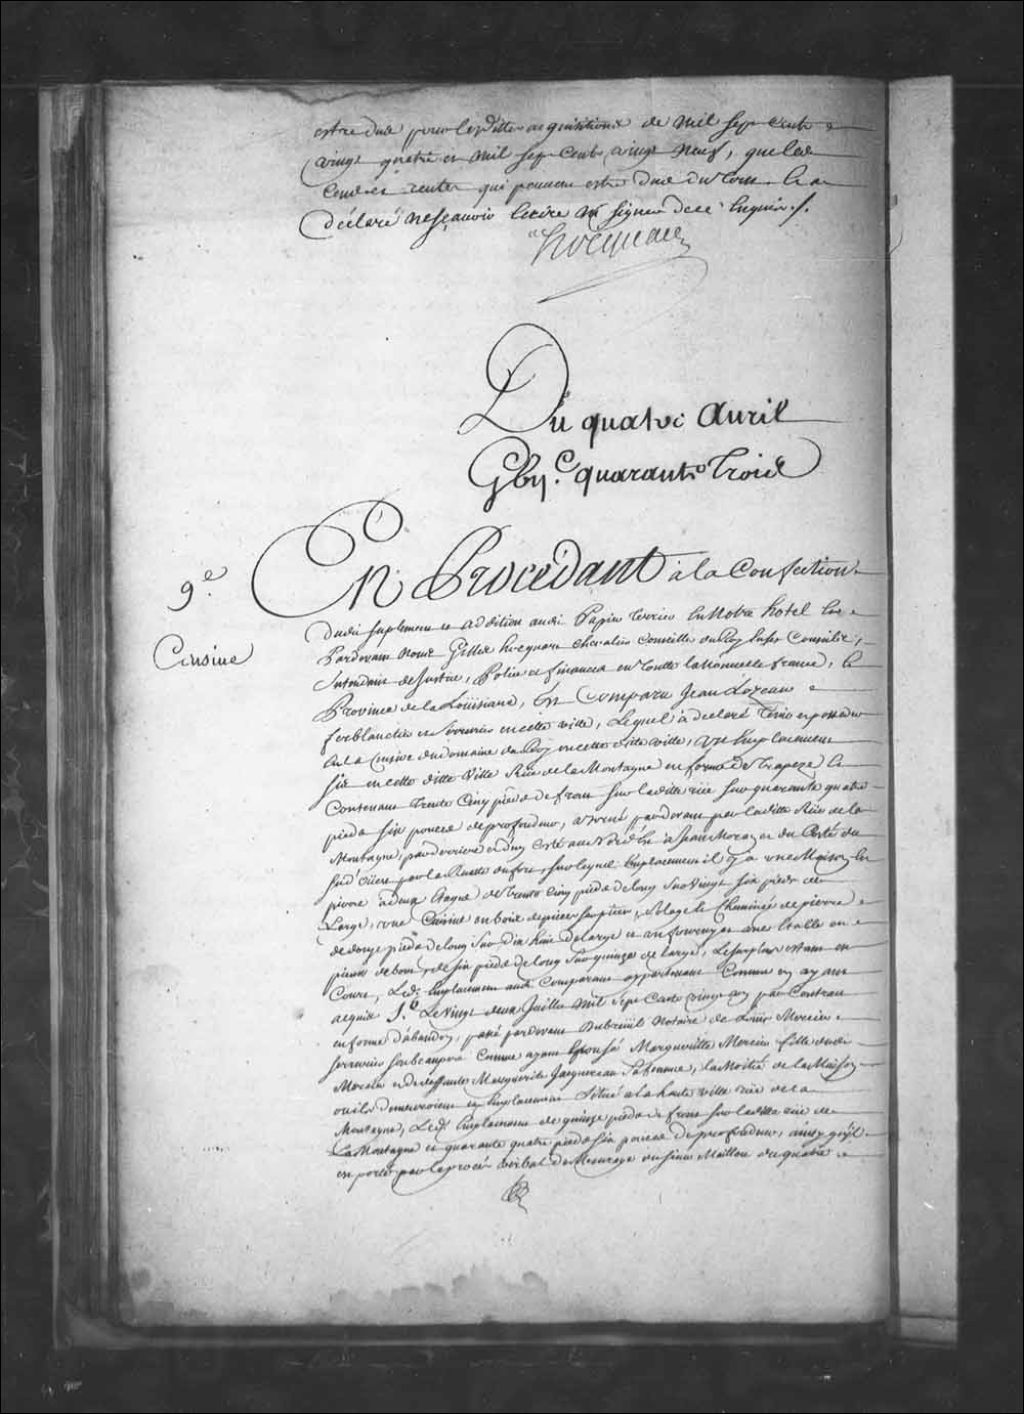 estre due pour lesdittes acquisitions de mil sept cents
vingt quatre et mil sept cents vingt neuf, que les
Cens et rentes qui peuvent estre Dues du tout. Et a
déclaré ne sçavoir Ecrire ni signer de ce Enquis ./.
hocquart
Du quatre Avril
Gbij.c quarante Trois
9.e
En Procédant à la Confection
Censive
Dudit suplement et addition audit Papier terrier En Notre hotel Et
Pardevant Nous Gilles hocquart chevalier Conseiller du Roy En ses Conseils,
Intendant de Justice, Police et finances en Toutte la Nouvelle france, Et
Province de la Loüisiane, Est Comparu Jean Lozeau
ferblantier et serrurier en cette ville, Lequel a declaré Tenir et posseder
En la Censive du domaine du Roy en cette ditte ville, un Emplacement
sis en cette ditte Ville Rüe de la Montagne en forme de Trapeze Et
Contenant Trente Cinq pieds de front sur laditte rüe sur quarante quatre
pieds six pouces de profondeur, borné pardevant par laditte Rüe de la
Montagne, par derriere et d'un costé au Nord Est à Jean Moran et du Costé du
sud oüest par la Ruelle du fort, sur lequel Emplacement il y a une Maison En
pierre à deux Etages de trente Cinq pieds de long sur vingt six pieds de
Large, une Cuisine en bois de pieces sur pieces, Solage et Cheminée de pierre
de douze pieds de long sur dix huit de large et un fournil avec Etable en
pieux debout de six pieds de long sur quinze de large, Le surplus estant en
Cour, Ledt. Emplacement audt Comparant appartenant Comme en ayant
acquis 1.o Le vingt deux Juillet mil sept Cents vingt six par Contrat
en forme d'abandon, passé pardevant Dubreüil Notaire de Loüis Mercier
serrurier son beaupere Comme ayant Epousé Margueritte Mercier fille dudt
Mercier et de deffunte Margueritte Jacquereau sa femme, la Moitié de la Maison
où ils demeuroient et Emplacement Situé à la haute ville rüe de la
Montagne, Ledt. Emplacement de quinze pieds de front sur laditte rüe de
La Montagne et quarante quatre pieds six pouces de profondeur, ainsy qu'il
est porté par le procés verbal de Mesurage du sieur Maillou du quatre